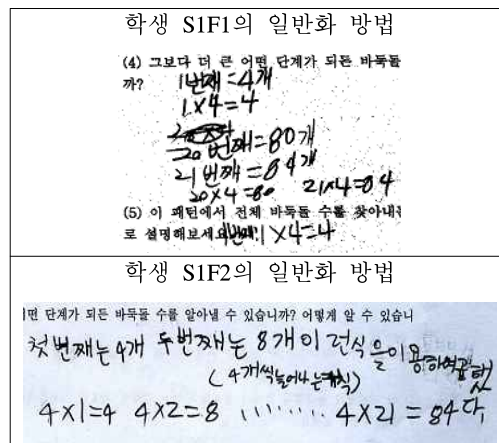 학생 S1F1의 일반화 방법
(4) 그보다 더 큰 어떤 단계가 되든 바둑돌
까?
1번째=4개
1×4=4
20번째=80개
21번째=84개
20×4=80 21×4=84
(5) 이 패턴에서 전체 바둑돌 수를 찾아내는
로 설명해보세요 1×4=4
학생 S1F2의 일반화 방법
떤 단계가 되든 바둑돌 수를 알아낼 수 있습니까? 어떻게 알 수 있습니
첫번째는 4개 두번째는 8개 이런식을 이용하여
(4개씩 늘어나는
4×1=4 4×2=8 ........ 4×21=84다.